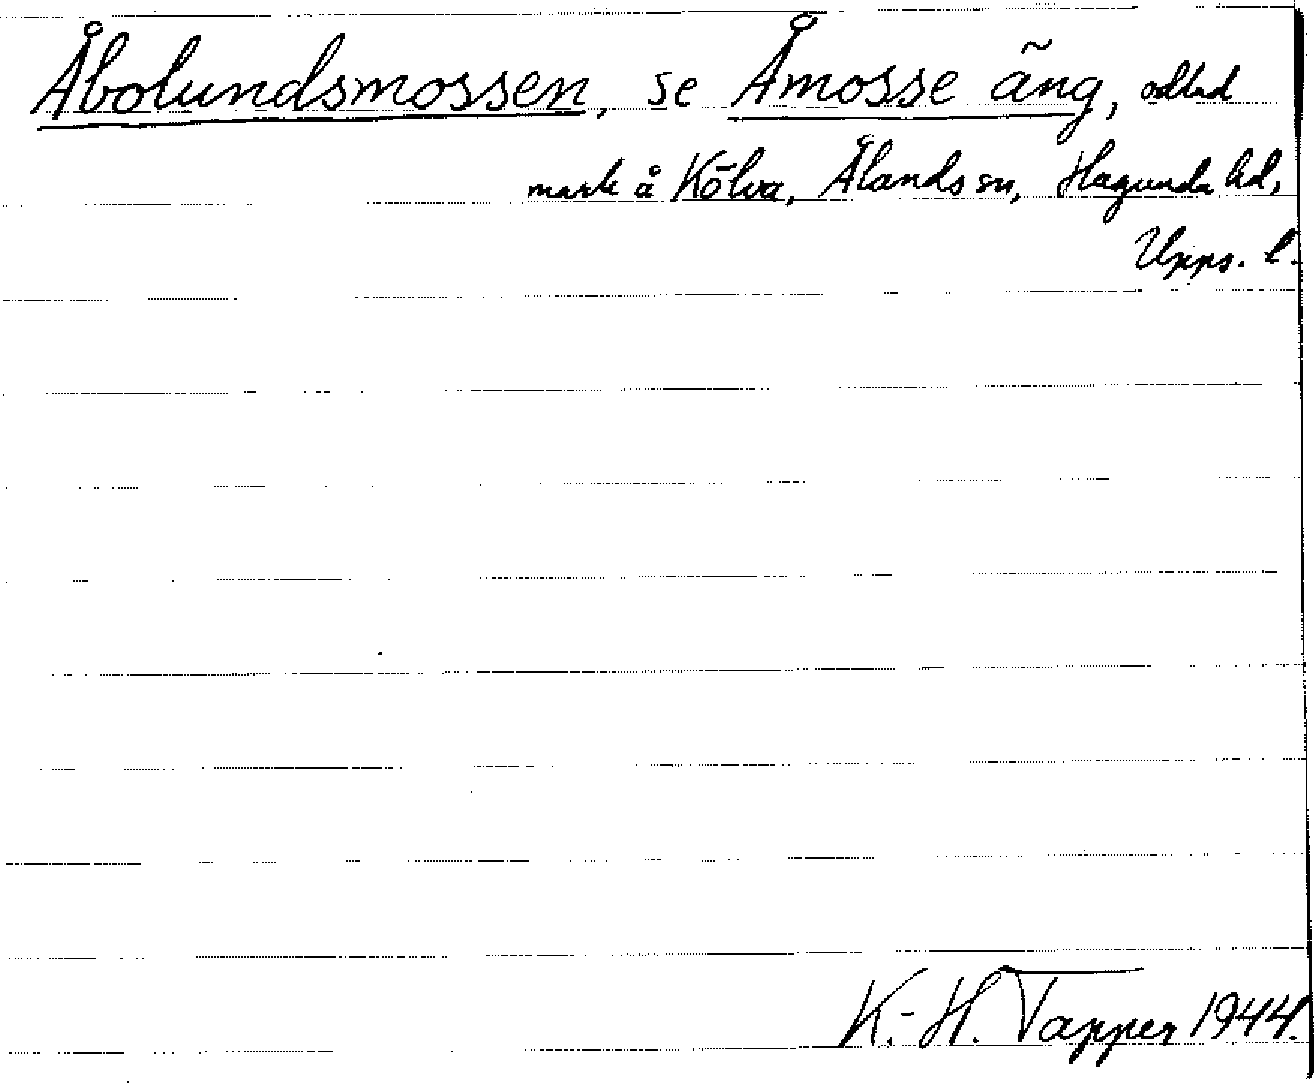 Åbolundsmossen, se Åmosse äng, odlad
mark å Kölva, Ålands sn, Hagunda hd,
Upps. l.
K.-H. Tapper 1944.